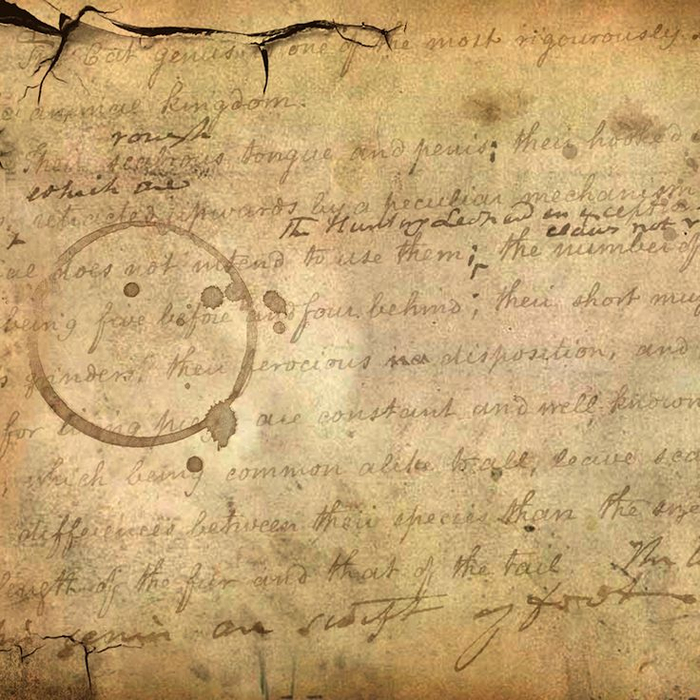 The Cat genus is one of the most rigourously
animal kingdom.
rough
Their scabrous tongue and penis; their hooked
which are
retracted upwards by a peculiar mechanism
The Hunting Leopard an exception claws not
does not intend to use them; the number of
being five before and four behind; their short
grinders, their ferocious disposition, and
for living are constant and well known
which being common alike to all, leave
differences between their species than the size
length of the fur and that of the tail The
genus are swift of foot